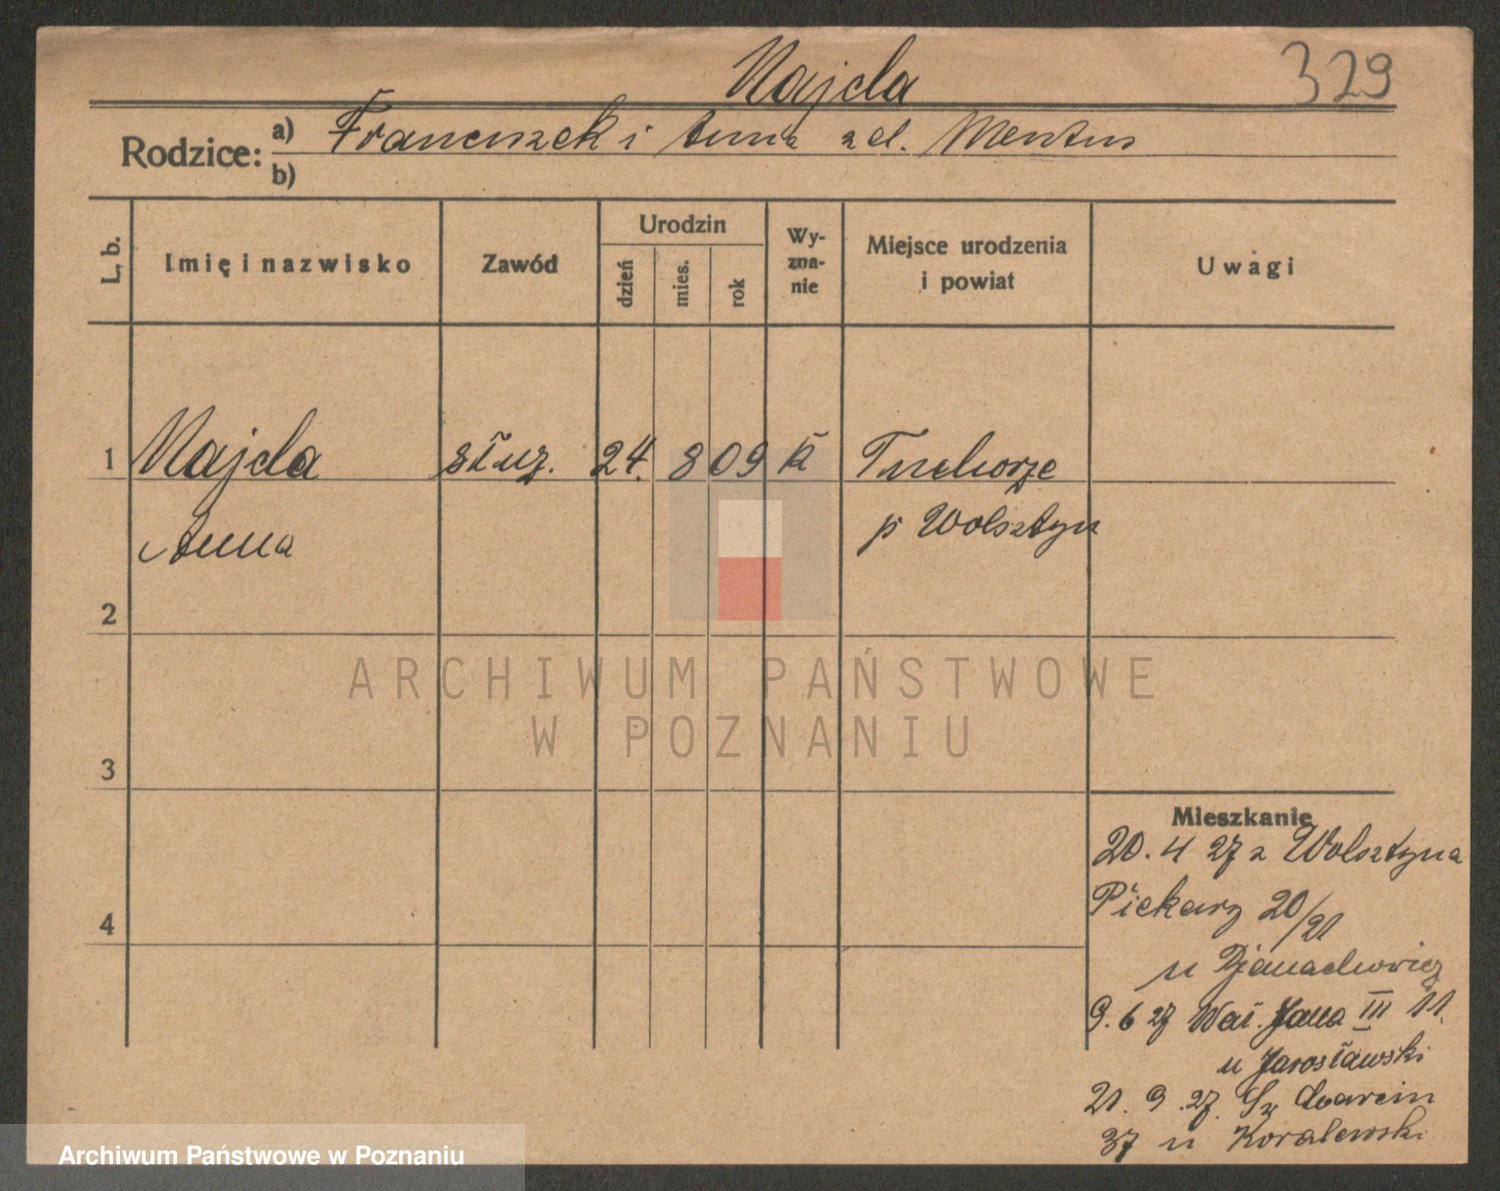 Najda 329
Rodzice: a) Franciszek i Anna z d. Mentus
b)
L. b. Imię i nazwisko Zawód Urodzin dzień mies. rok Wy-zna-nie Miejsce urodzenia i powiat Uwagi
1 Najda służ. 24. 8 09 k Tuchorze
Anna p Wolsztyn
2
3
4
Mieszkanie
20. 4 27 z Wolsztyna
Piekary 20/21
u
9. 6 27 Wał. Jana III 11.
u Jarosławski
21. 9. 27. Św Marcin
37 u Koralewski
ARCHIWUM PAŃSTWOWE
W POZNANIU
Archiwum Państwowe w Poznaniu